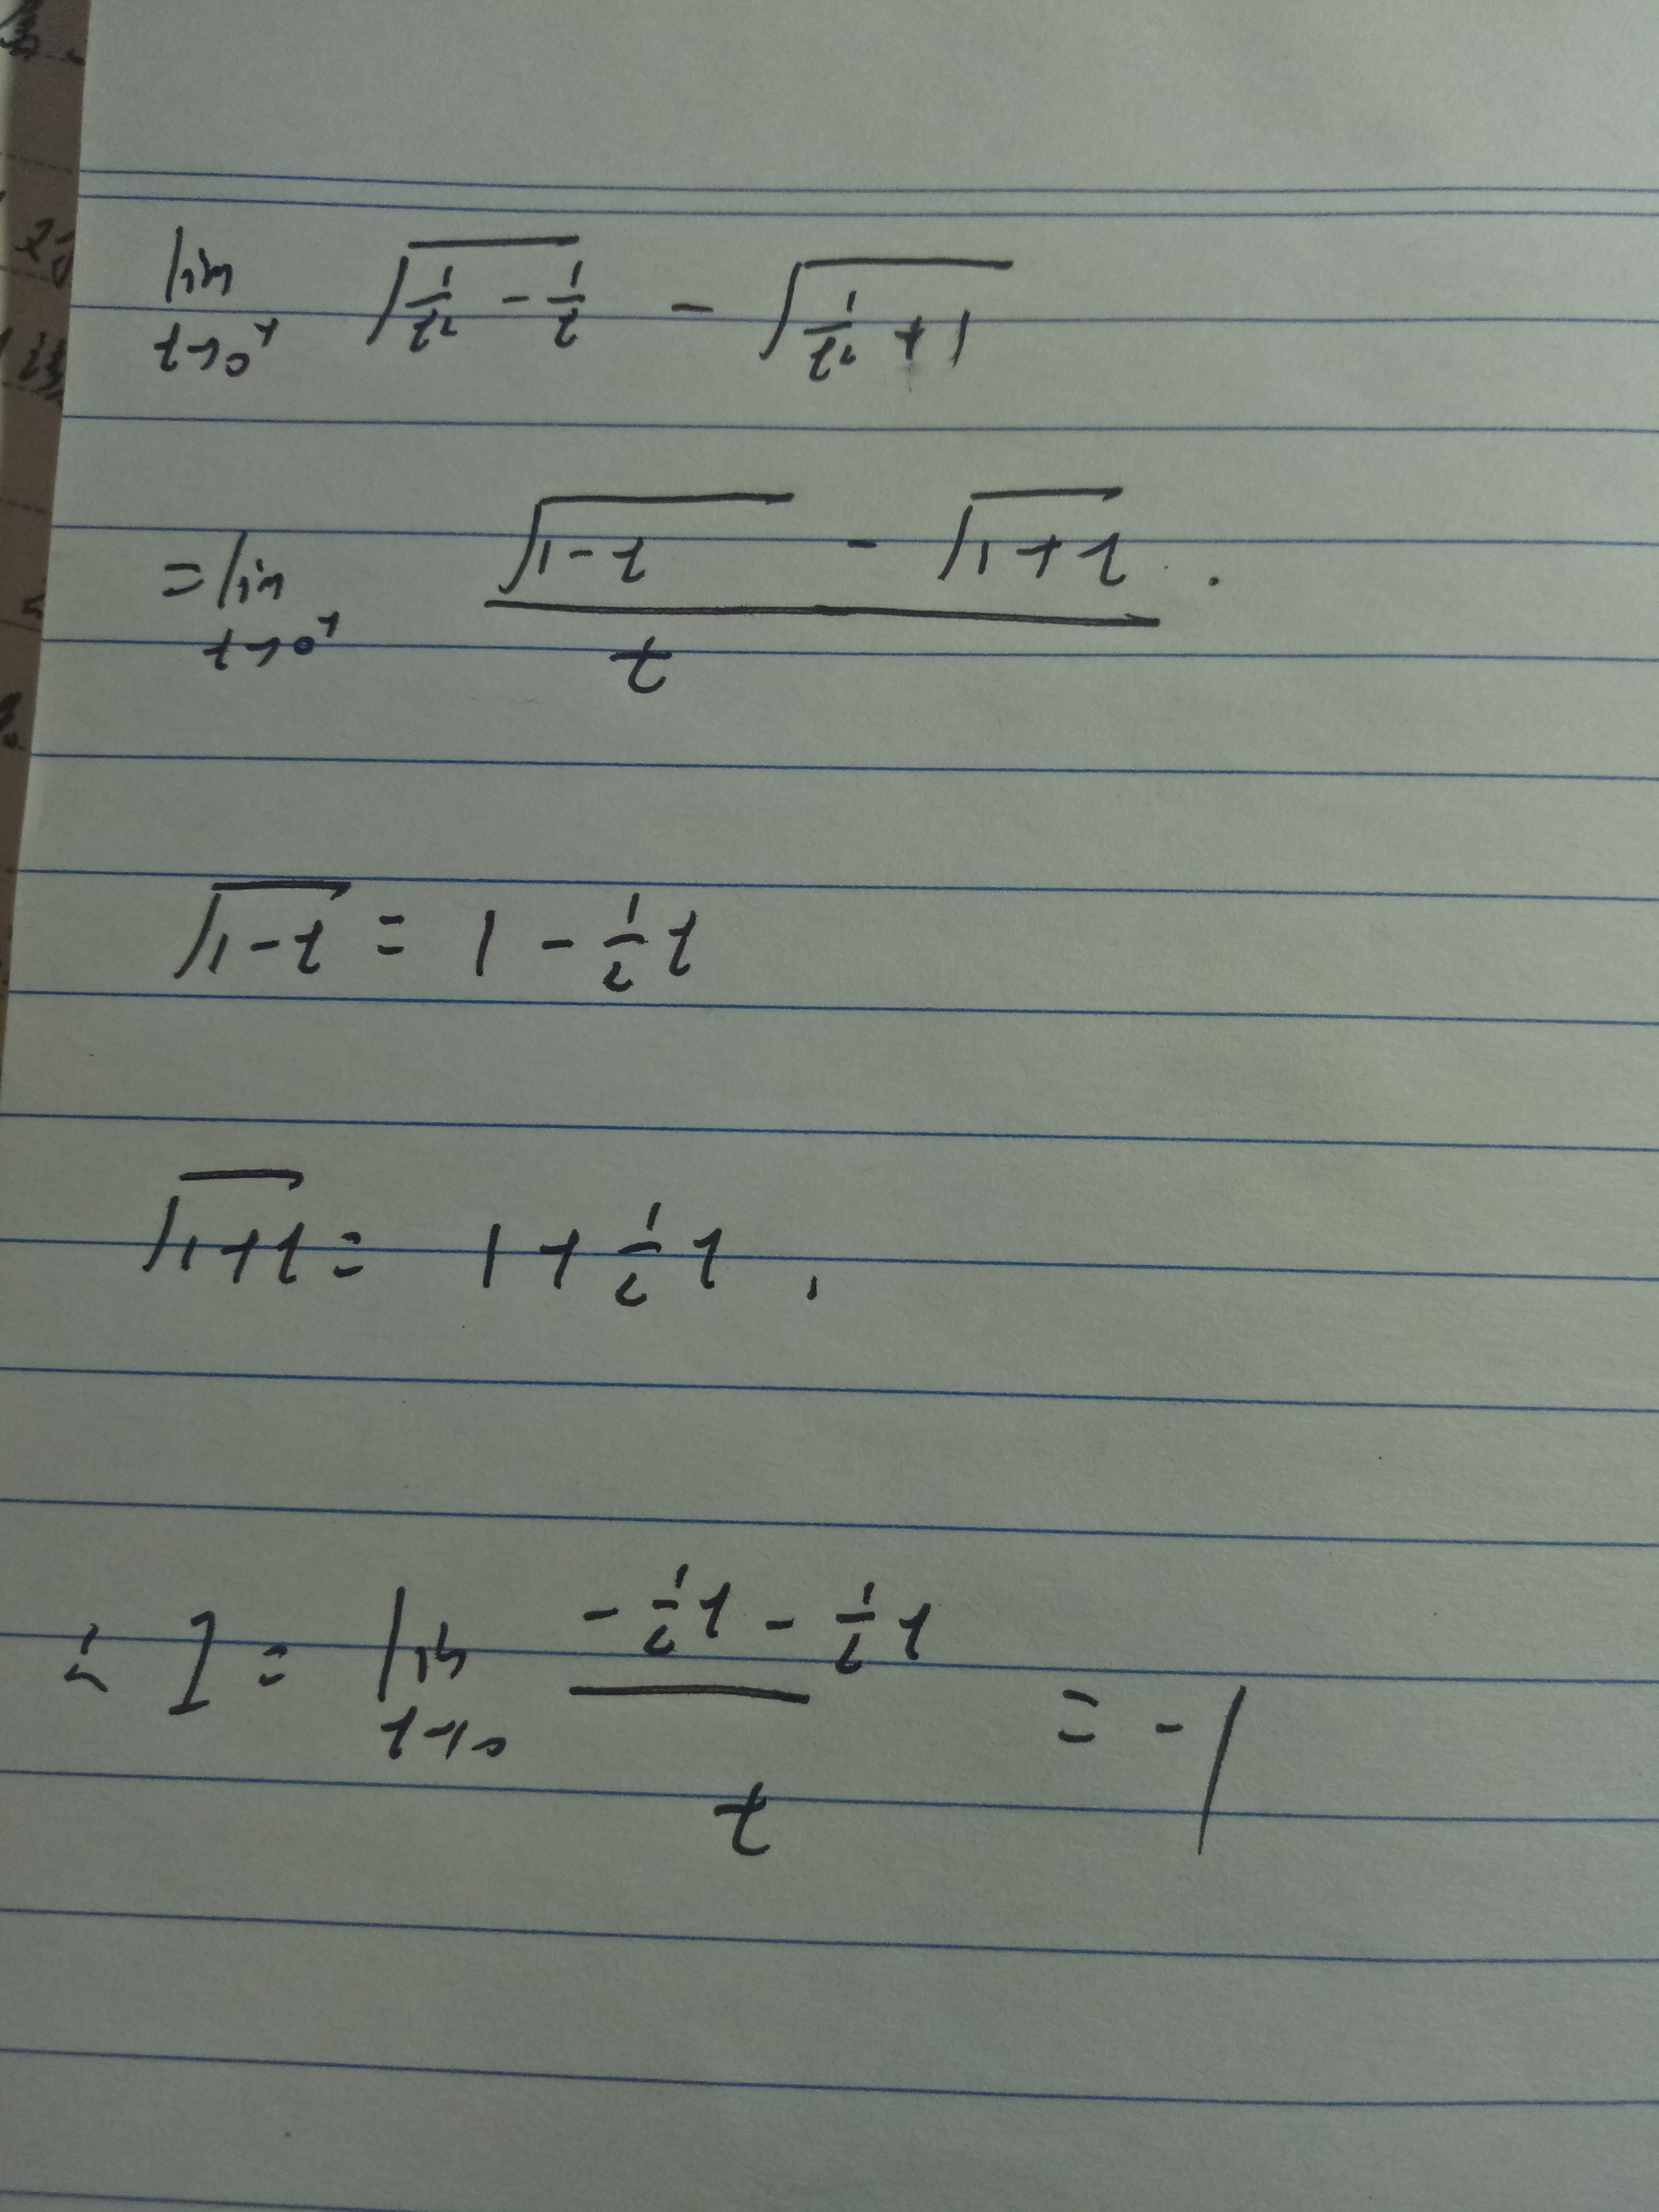 lim t→0⁺ √(1/t² - 1/t) - √(1/t² + 1)
= lim t→0⁺ (√(1-t) - √(1+t)) / t .
√(1-t) = 1 - 1/2 t
√(1+t) = 1 + 1/2 t ,
∴ I = lim t→0 (-1/2 t - 1/2 t) / t = -1